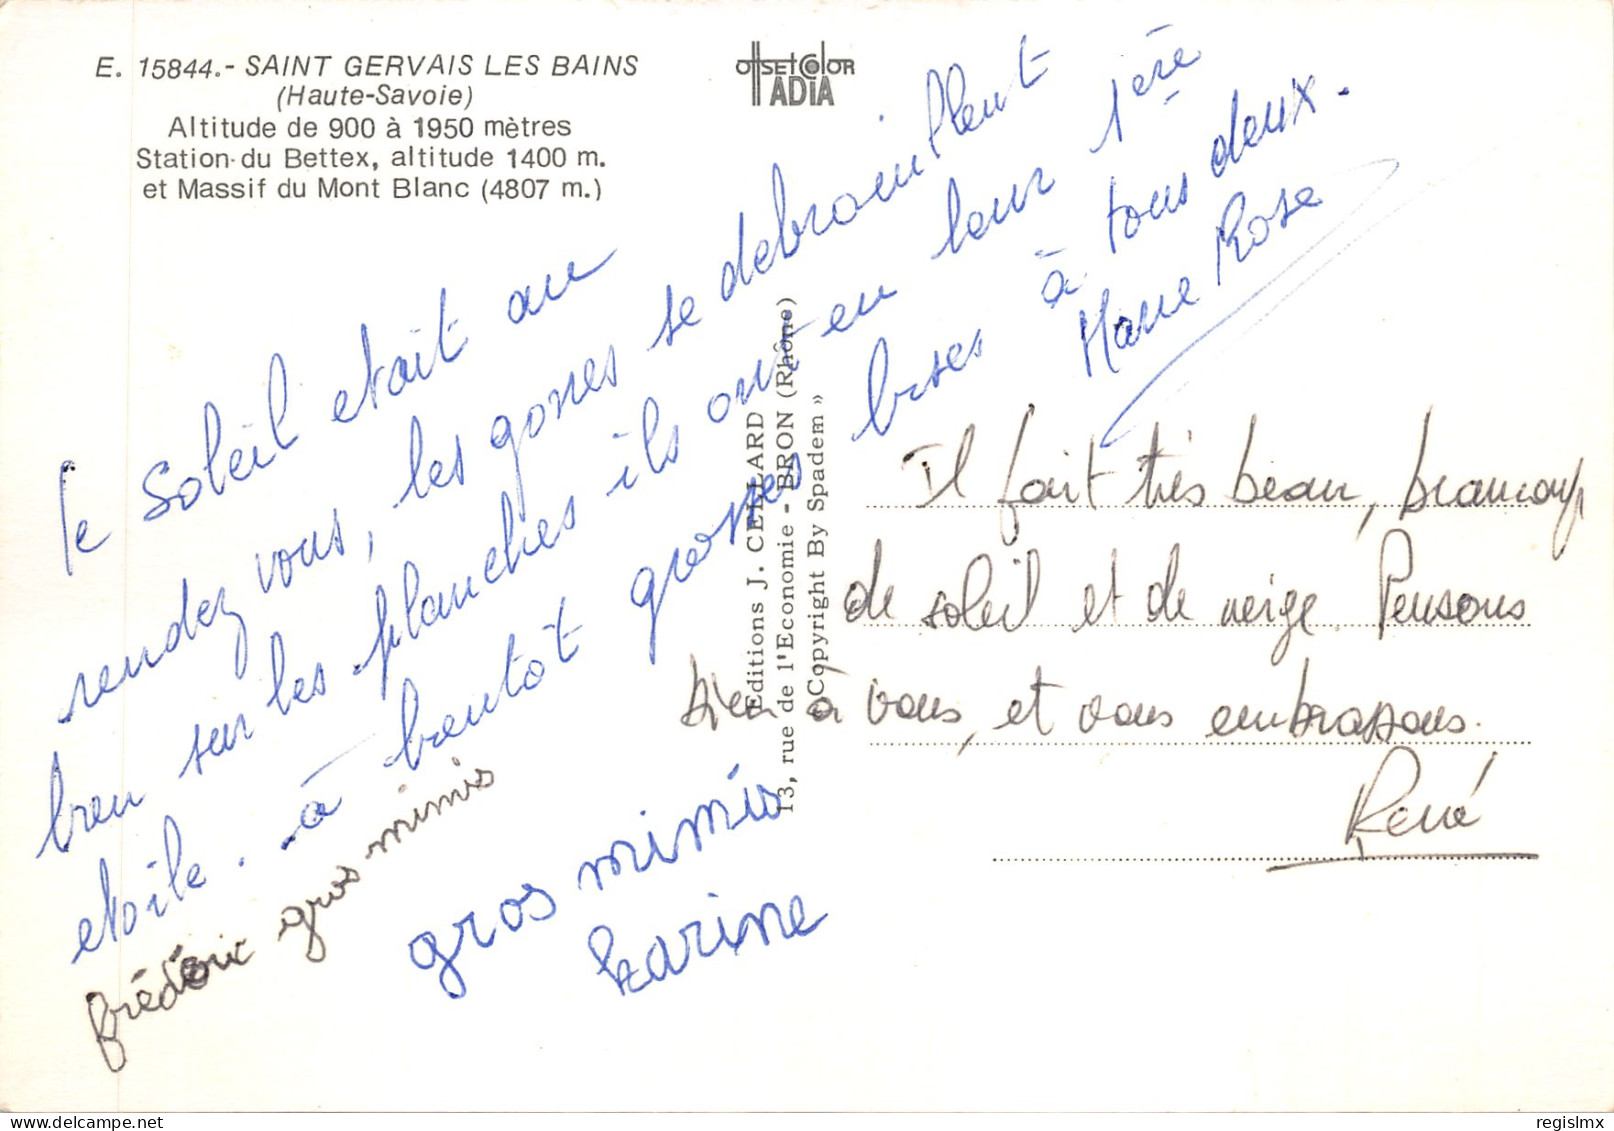 E. 15844.- SAINT GERVAIS LES BAINS
(Haute-Savoie)
Altitude de 900 à 1950 mètres
Station du Bettex, altitude 1400 m.
et Massif du Mont Blanc (4807 m.)
OffsetColor
ADIA
le soleil etait au
rendez vous, les gones se debrouillent
bien sur les planches ils ont en leur 1ère
etoile. à bientôt grosses bises à tous deux.
Marie Rose
frédéric gros mimis
gros mimis
karine
Editions J. CELLARD
13, rue de l'Economie - BRON (Rhône)
«Copyright By Spadem»
Il fait très beau, beaucoup
de soleil et de neige. Pensons
bien à vous, et vous embrassons.
René
regislmx